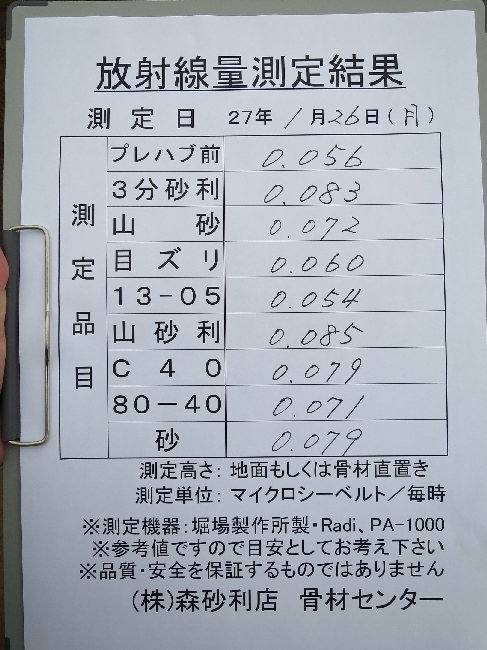 放射線量測定結果
測定日 27年1月26日(月)
測定品目
プレハブ前 0.056
3分砂利 0.083
山砂 0.072
目ズリ 0.060
13-05 0.054
山砂利 0.085
C40 0.079
80-40 0.071
砂 0.079
測定高さ: 地面もしくは骨材直置き
測定単位: マイクロシーベルト/毎時
※測定機器:堀場製作所製・Radi、PA-1000
※参考値ですので目安としてお考え下さい
※品質・安全を保証するものではありません
(株)森砂利店 骨材センター